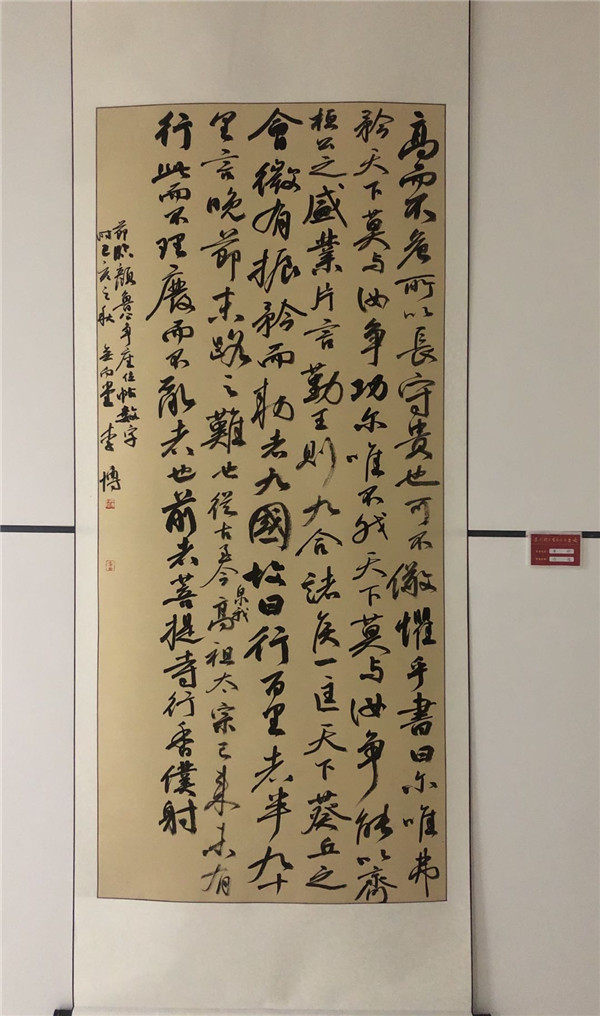 高而不危所以長守貴也可不儆懼乎書曰尔唯弗
矜天下莫与汝争功尔唯不伐天下莫与汝争能以齊
桓公之盛業片言勤王則九合諸侯一匡天下葵丘之
會微有振矜而叛者九國故曰行百里者半九十
里言晚節末路之難也從古至今
泉我
高祖太宗已来未有
行此而不理廢而不亂者也前者菩提寺行香僕射
節臨顏魯公争座位帖數字
时己亥之秋 堂 李博